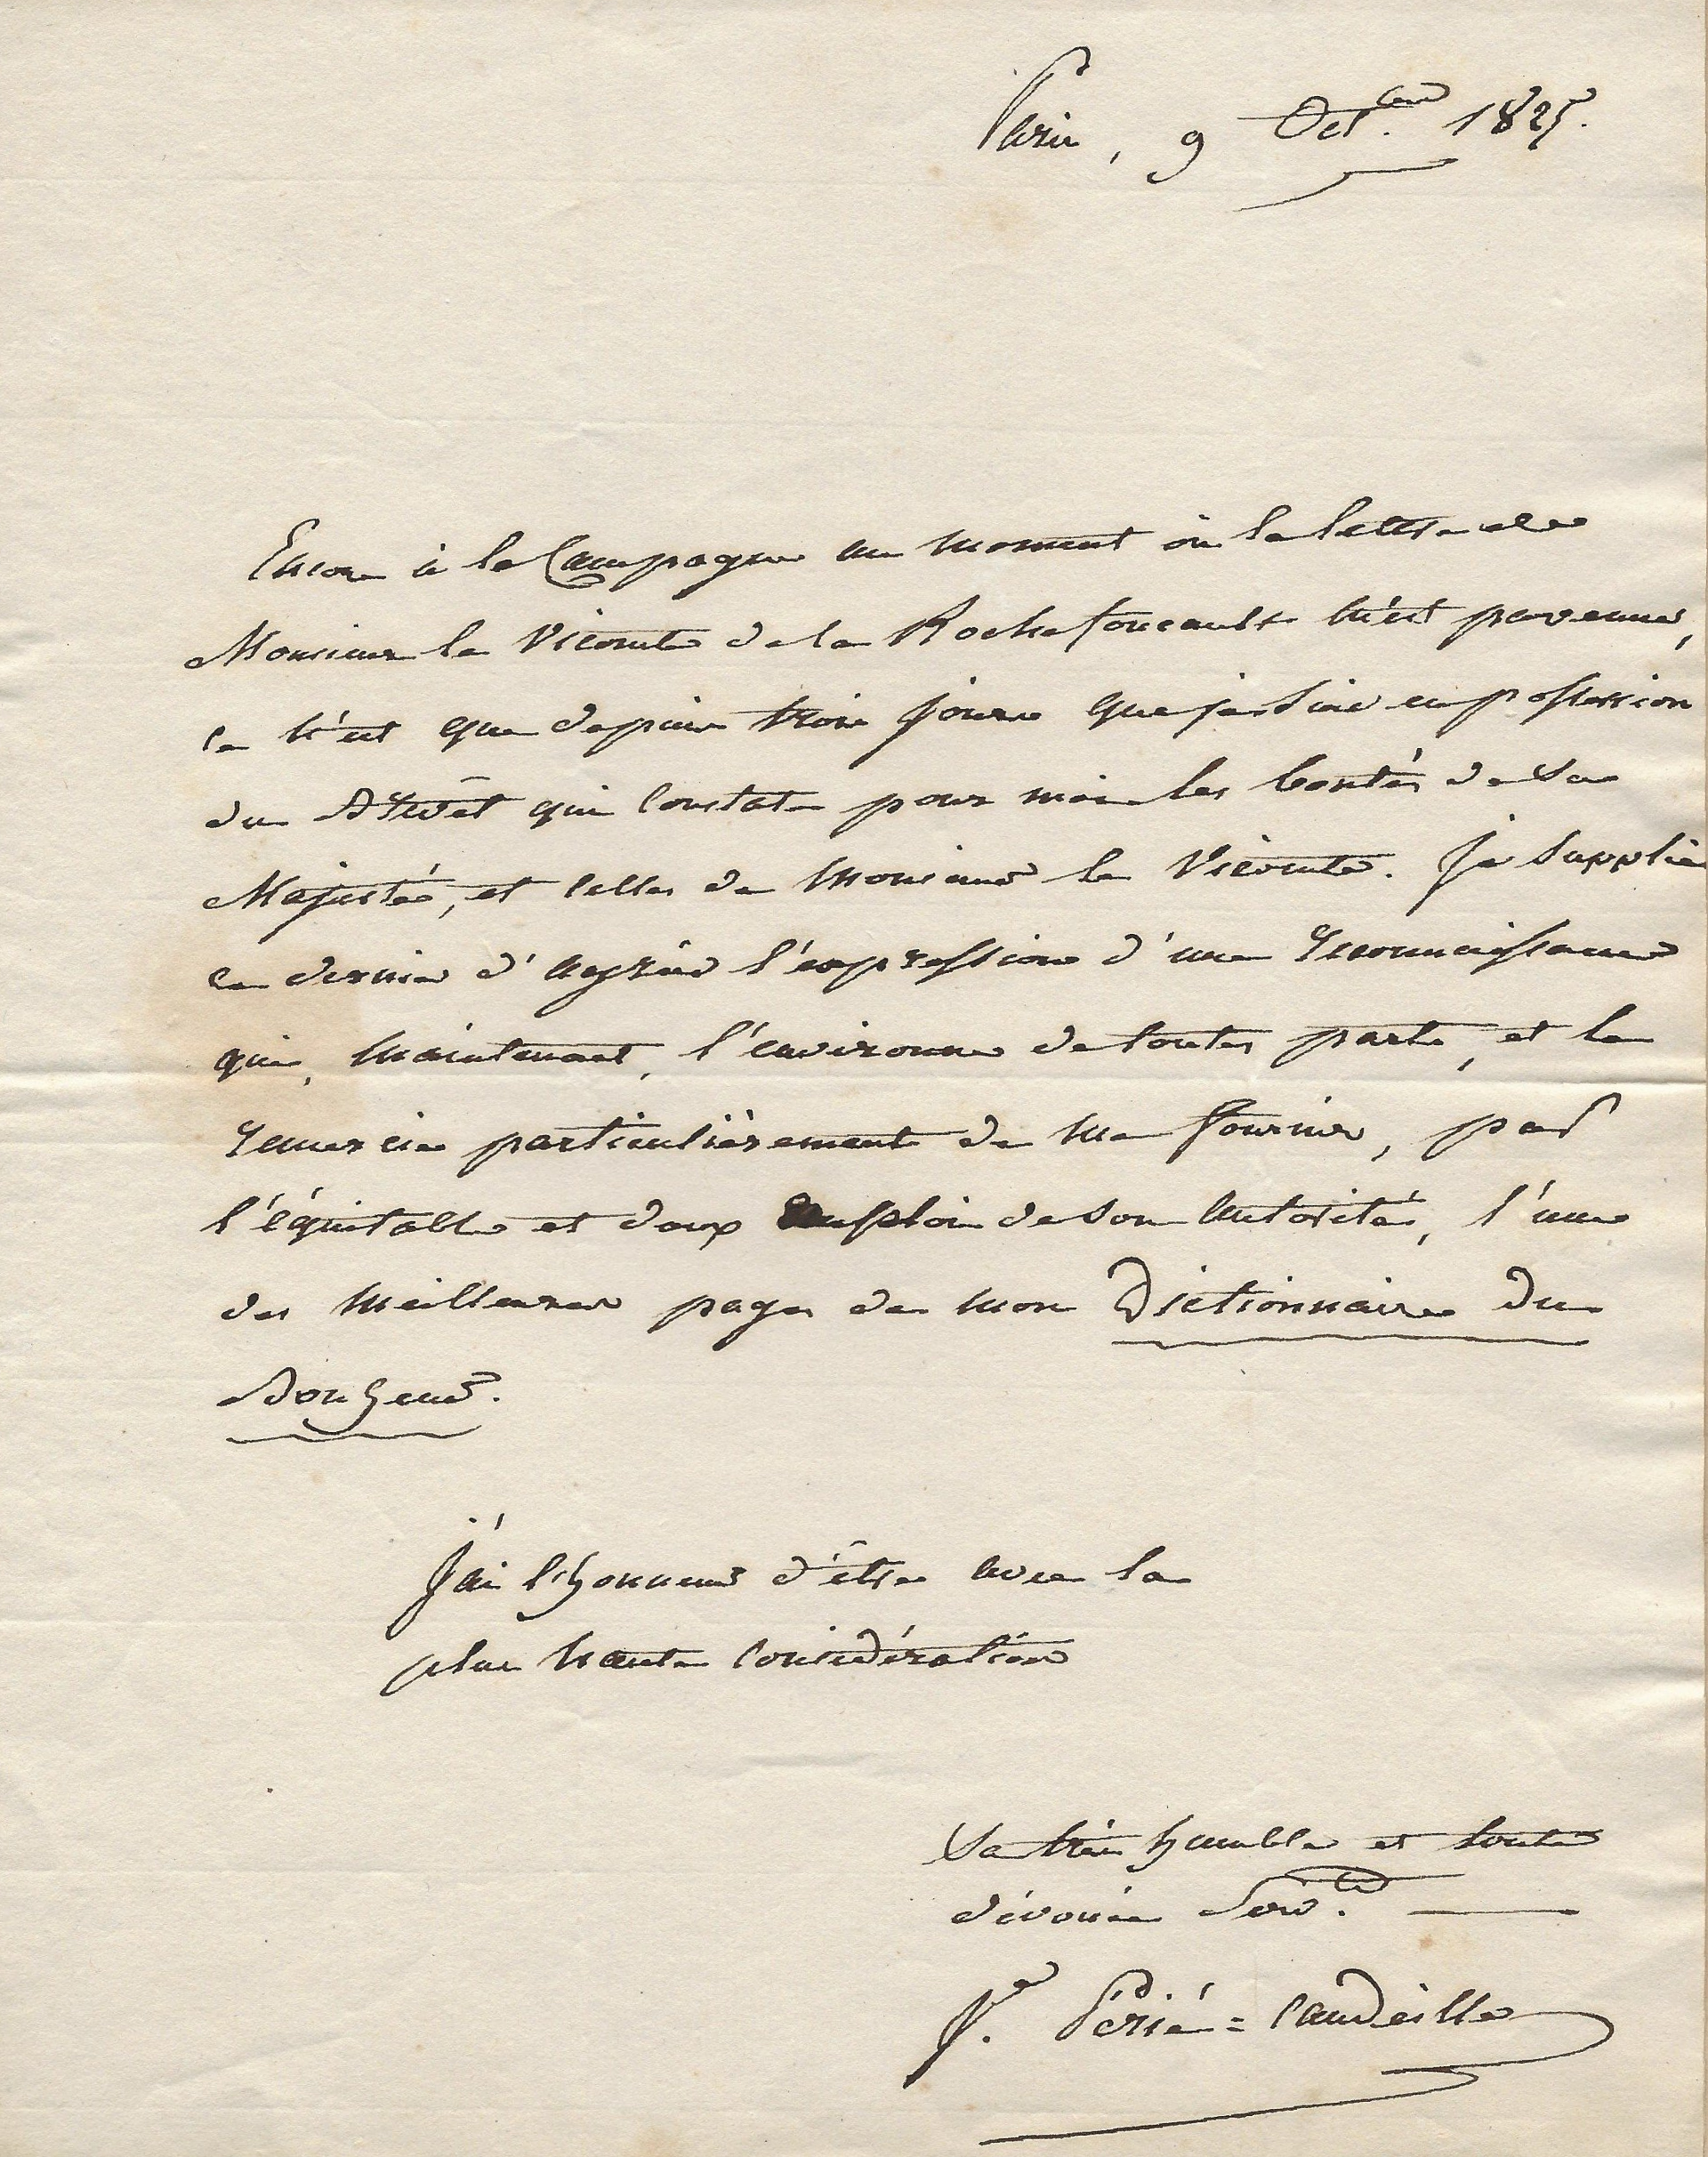 Paris, 9 Oct.bre 1825.
Encore à la Campagne au moment où la lettre de
Monsieur le Vicomte de la Rochefoucault m'est parvenue,
ce n'est que depuis trois jours que je suis en possession
du Brevêt qui constate pour moi les bontés de Sa
Majesté, et celles de Monsieur le Vicomte. Je supplie
ce dernier d'agréer l'expression d'une reconnaissance
qui, maintenant, l'environne de toutes parts, et le
remercie particulièrement de me fournir, par
l'équitable et doux emploi de son autorité, l'une
des meilleures pages de mon Dictionnaire du
Bonheur.
J'ai l'honneur d'être avec la
plus haute considération
Sa très humble et toute
dévouée Serv.te
J. Périé=Candeille